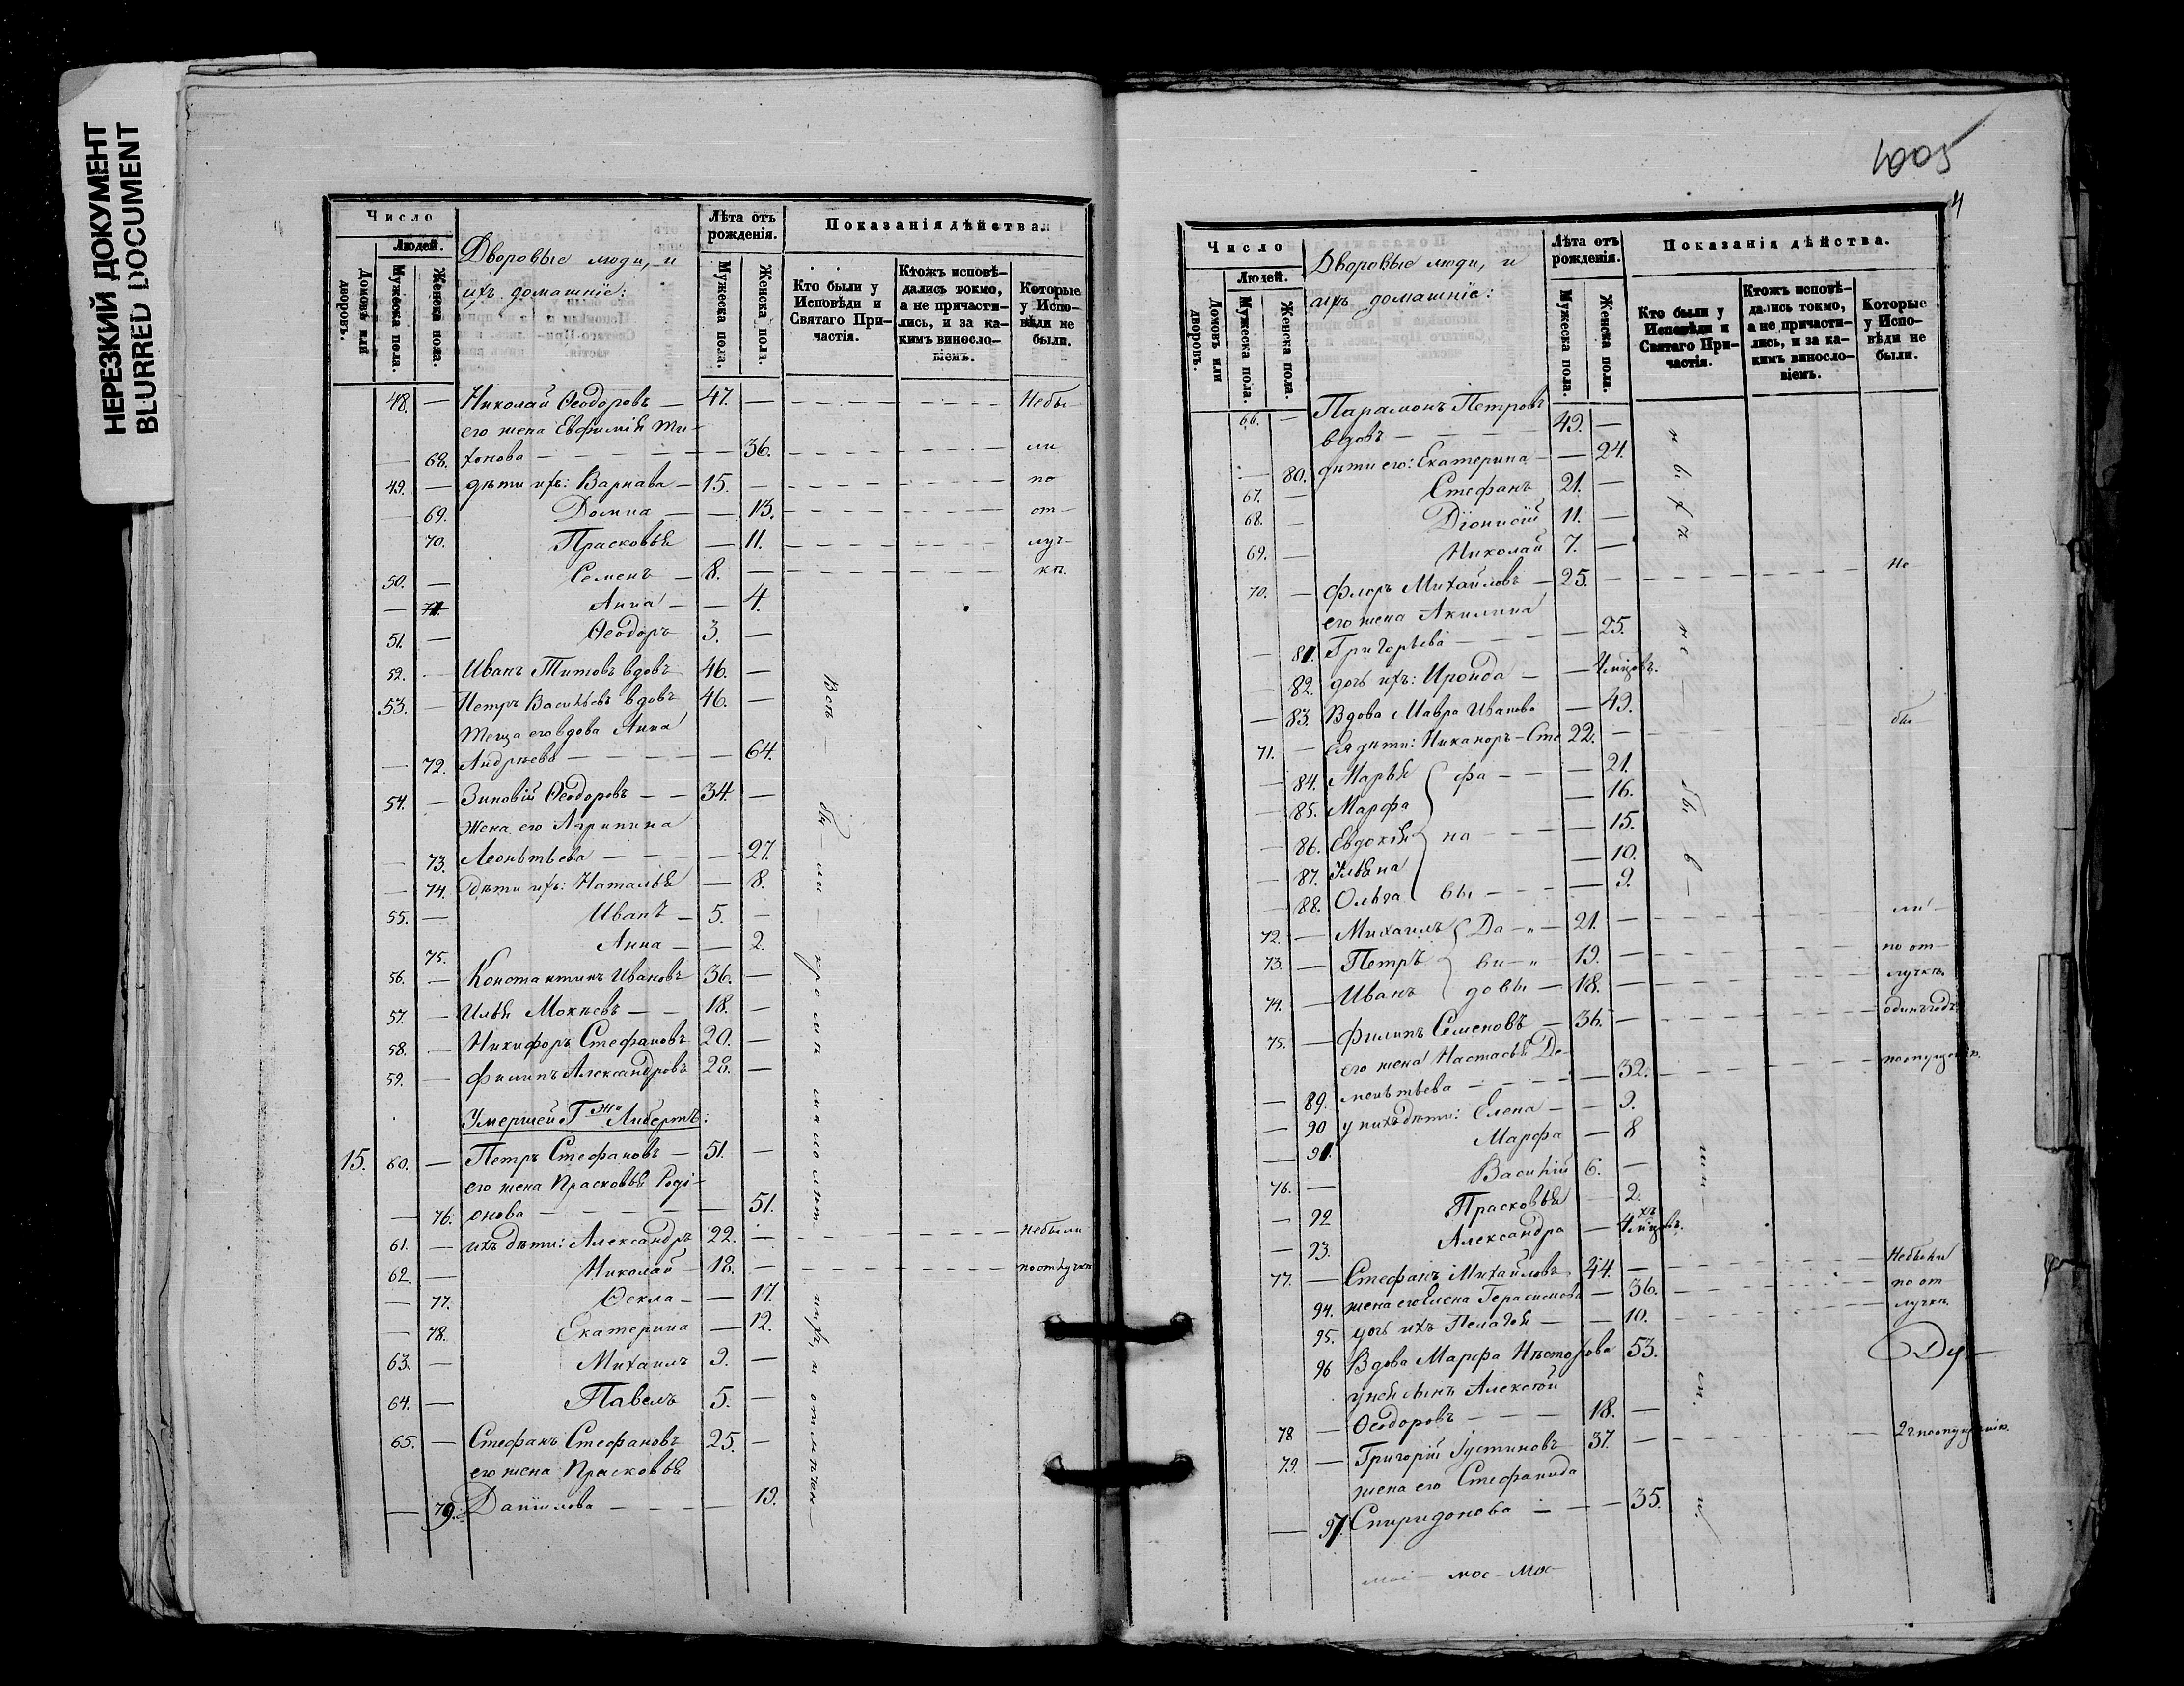 НЕРЕЗКИЙ ДОКУМЕНТ
BLURRED DOCUMENT
Число
Людей.
Домовъ или дворовъ.
Мужеска пола.
Женска пола.
Дворовые люди, и
ихъ домашніе:
Лѣта отъ рожденія.
Мужеска пола.
Женска пола.
Показанія дѣйства.
Кто были у Исповѣди и Святаго Причастія.
Ктожъ исповѣдались токмо, а не причастились, и за какимъ винословіемъ.
Которые у Исповѣди не были.
48. — Николай Ѳеодоровъ — 47. — Небы-
его жена Евфимія Ти-
— 68. хонова — 36. ли
49. — дѣти ихъ: Варнава — 15. — по
— 69. Домна — — 13. от-
70. Прасковья — 11. луч-
50. — Семенъ — 8. — кѣ.
— 71. Анна — — 4.
51. — Ѳеодоръ 3. —
52. — Иванъ Титовъ вдовъ 46. —
53. — Петръ Васильевъ вдовъ 46. —
Теща его вдова Анна
— 72. Андреева — 64.
54. — Зиновій Ѳеодоровъ — 34. —
Жена его Агрипина
— 73. Леонтьева — 27.
— 74. Дѣти ихъ: Наталья — 8.
55. — Иванъ — 5. —
75. Анна — — 2.
56. — Константинъ Ивановъ 36. —
57. — Илья Мокѣевъ — 18. —
58. — Никифоръ Стефановъ 20. —
59. — Филипъ Александровъ 28. —
Умершей Г жи Либертъ:
15. 60. — Петръ Стефановъ — 51. —
его жена Прасковья Роді-
— 76. онова — 51.
61. — ихъ дѣти: Александръ 22. — небыли
62. — Николай — 18. — по отлучкѣ
— 77. Ѳекла — — 17.
— 78. Екатерина — 12.
63. — Михаилъ 9. —
64. — Павелъ 5. —
65. — Стефанъ Стефановъ 25. —
его жена Прасковья
— 79. Даніилова — 19.
Всѣ — бы — ли —
1005
4
Число
Людей.
Домовъ или дворовъ.
Мужеска пола.
Женска пола.
Дворовые люди, и
ихъ домашніе:
Лѣта отъ рожденія.
Мужеска пола.
Женска пола.
Показанія дѣйства.
Кто были у Исповѣди и Святаго Причастія.
Ктожъ исповѣдались токмо, а не причастились, и за какимъ винословіемъ.
Которые у Исповѣди не были.
66. — Парамонъ Петровъ
вдовъ — 49. —
— 80. дѣти его: Екатерина — — 24.
67. — Стефанъ 21. —
68. — Діонисій 11. —
69. — Николай 7. —
70. — Флоръ Михайловъ — 25. — Не
его жена Акилина
— 81. Григорьева — — 25.
— 82. дочь ихъ: Ироида — — 4 мцовъ.
— 83. Вдова Мавра Иванова — 49.
71. — Ея дѣти: Никаноръ — Сте 22. — бы
— 84. Марья фа — — 21.
— 85. Марфа — 16.
— 86. Евдокія на — — 15.
— 87. Ульяна — 10.
— 88. Ольга вы — — 9.
72. — Михаилъ Да — 21. — ли
73. — Петръ ви — 19. — по от-
74. — Иванъ довы — 18. — лучкѣ
75. — Филипъ Семеновъ — 36. — одинъ годъ
его жена Настасья Де-
— 89. ментьева — — 32. по опущенію.
— 90 у нихъ дѣти: Елена — — 9.
— 91. Марфа — 8
76. — Василій 6. —
— 92 Прасковья — 2.
— 93. Александра — 4хъ мцовъ.
77. — Стефанъ Михайловъ 44. — Небыли
94. жена его Елена Герасимова — 36. по от
95. дочь ихъ Пелагея — — 10. лучкѣ.
96 Вдова Марфа Нѣсторова 53.
у ней сынъ Алексѣй
78 — Ѳеодоровъ — 18. —
79. — Григорій Густиновъ 37. — 2 г. по опущенію.
жена его Стефанида
— 97. Спиридонова — — 35.